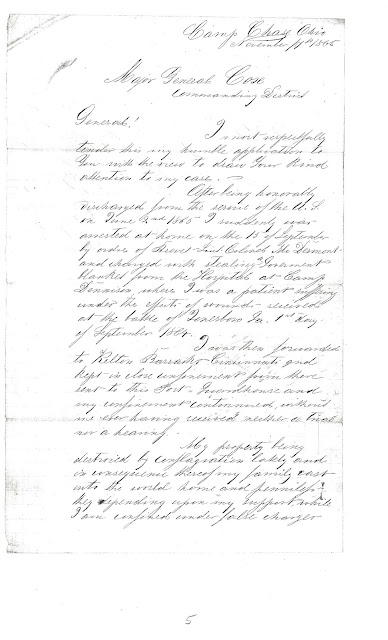 Camp Chase Ohio
November 11th 1865
Major General Cox
Commanding District
General!
I most respectfully
tender this my humble application to
You with the view to draw Your Kind
attention to my case.
After being honorably
discharged from the service of the U.S.
on June 2nd 1865 I suddenly was
arrested at home on the 15 of September
by order of Brevet Lieut Colonel Mc Dermont
and charged with stealing Government
blankets from the Hospital at Camp
Dennison where I was a patient suffering
under the effects of wounds received
at the battle of Jonesboro Ga. 1st Day
of September 1864.
I was then forwarded
to Kelton Barracks Cincinnati and
kept in close confinement from there
sent to this Post-Guardhouse and
my confinement continued, without
me ever having received neither a trial
nor a hearing.
My property being
destroyed by conflagration lately and
in consequence thereof my family cast
into the world home and penniless
they depending upon my support while
I am confined under false charges
5